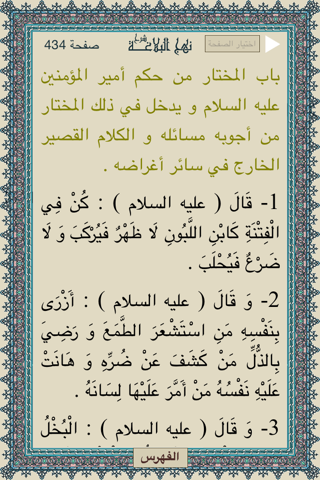 صفحة 434
شرح
نهج البلاغة
اختيار الصفحة
باب المختار من حكم أمير المؤمنين
عليه السلام و يدخل في ذلك المختار
من أجوبه مسائله و الكلام القصير
الخارج في سائر أغراضه .
1- قَالَ ( عليه السلام ) : كُنْ فِي
الْفِتْنَةِ كَابْنِ اللَّبُونِ لَا ظَهْرٌ فَيُرْكَبَ وَ لَا
ضَرْعٌ فَيُحْلَبَ .
2- وَ قَالَ ( عليه السلام ) : أَزْرَى
بِنَفْسِهِ مَنِ اسْتَشْعَرَ الطَّمَعَ وَ رَضِيَ
بِالذُّلِّ مَنْ كَشَفَ عَنْ ضُرِّهِ وَ هَانَتْ
عَلَيْهِ نَفْسُهُ مَنْ أَمَّرَ عَلَيْهَا لِسَانَهُ .
3- وَ قَالَ ( عليه السلام ) : الْبُخْلُ
الفهرس